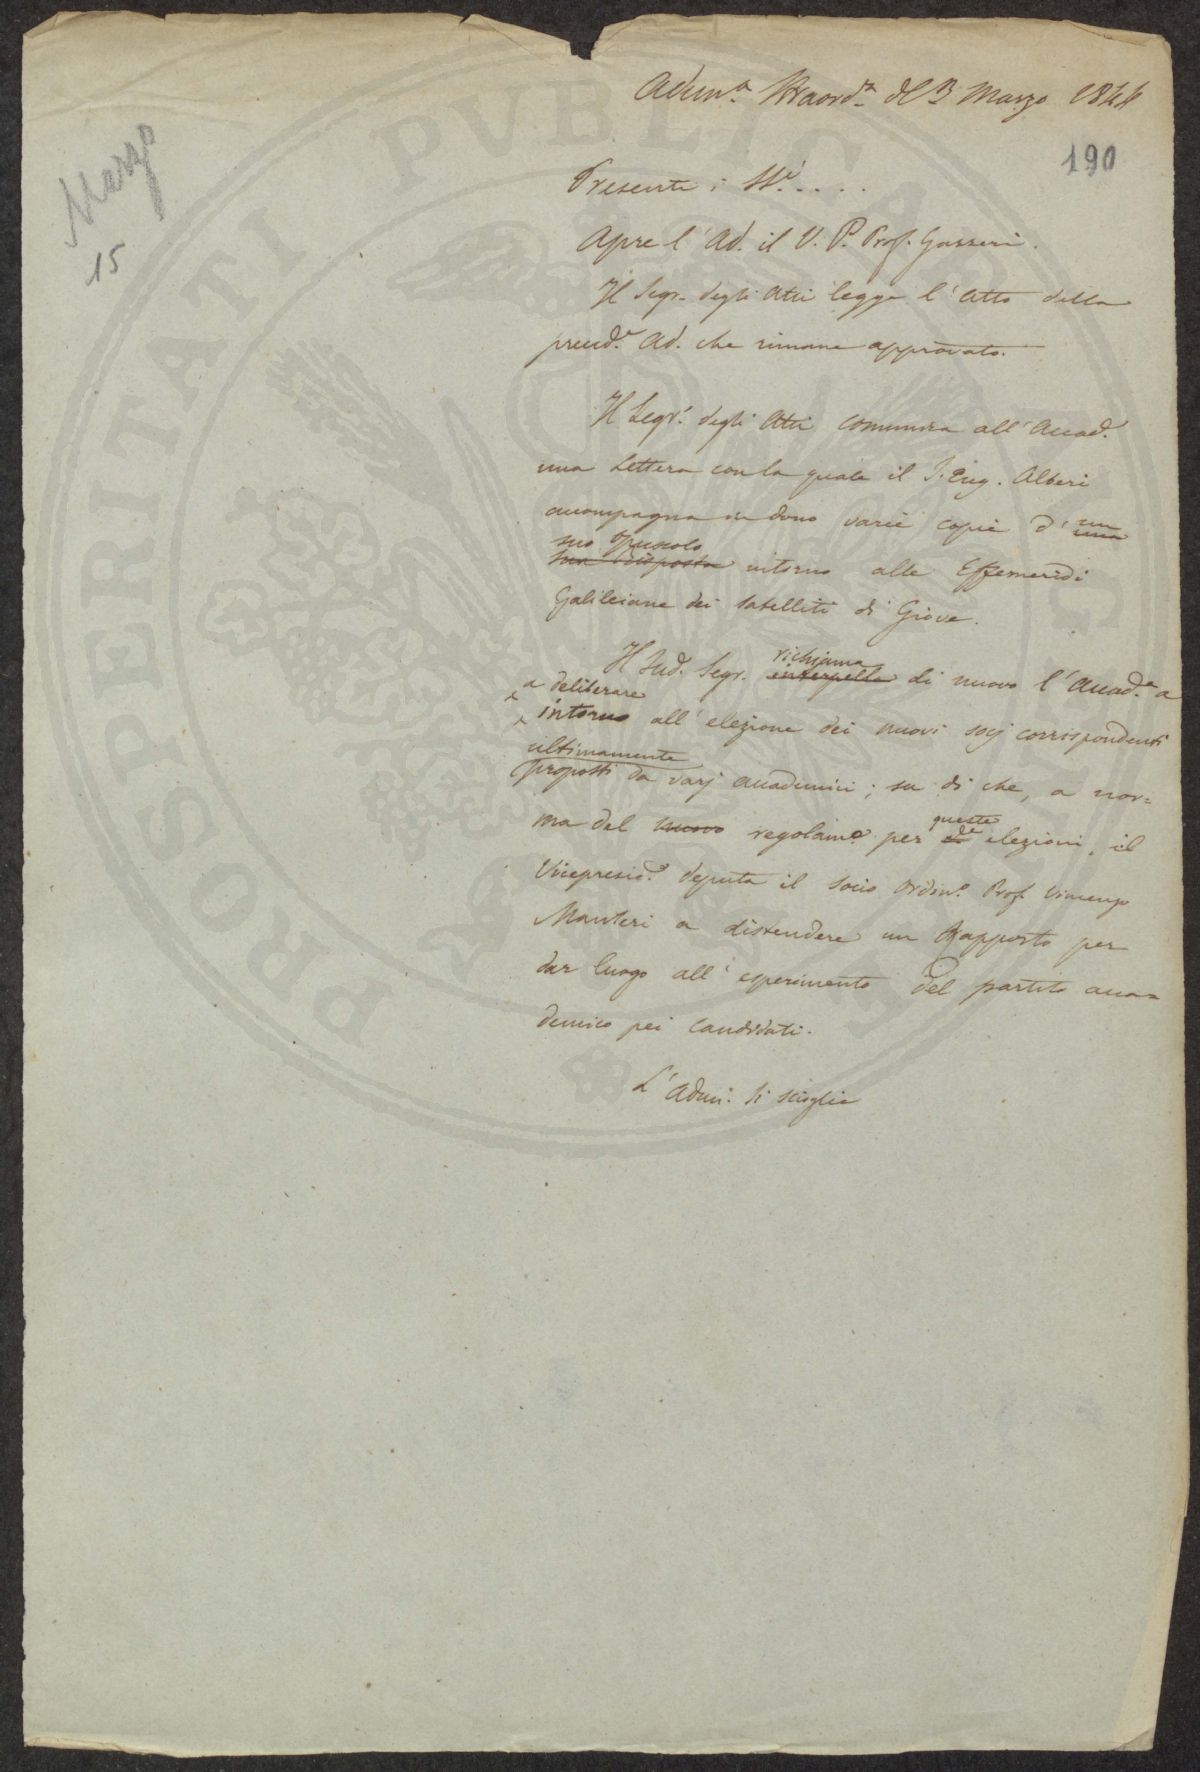 Adun.ª Straord.ª del 3 Marzo 1844
190
Marzo
15
Presenti i SS.i . . . .
Apre l'Ad. il V. P. Prof. Gazzeri.
Il Segr. degli Atti legge l'Atto della
preced.e Ad. che rimane approvato.
Il Segr. degli Atti comunica all'Accad.
una Lettera con la quale il S. Eug. Alberi
accompagna in dono varie copie d' un
una
suo Opuscolo
sua Risposta intorno alle Effemeridi
Galileiane dei Satelliti di Giove.
richiama
Il Sud. Segr. interpella di nuovo l'Accad.ª a
a deliberare
intorno all'elezione dei nuovi socj corrispondenti
ultimamente
proposti da varj accademici; su di che, a nor=
queste
ma del nuovo regolam.o per elezioni, il
Vicepresid.e deputa il socio ordin.o Prof. Vincenzo
Manteri a distendere un Rapporto per
dar luogo all'esperimento del partito acca=
demico pei candidati.
L'Adun. si scioglie
PROSPERITATI PVBLICAE